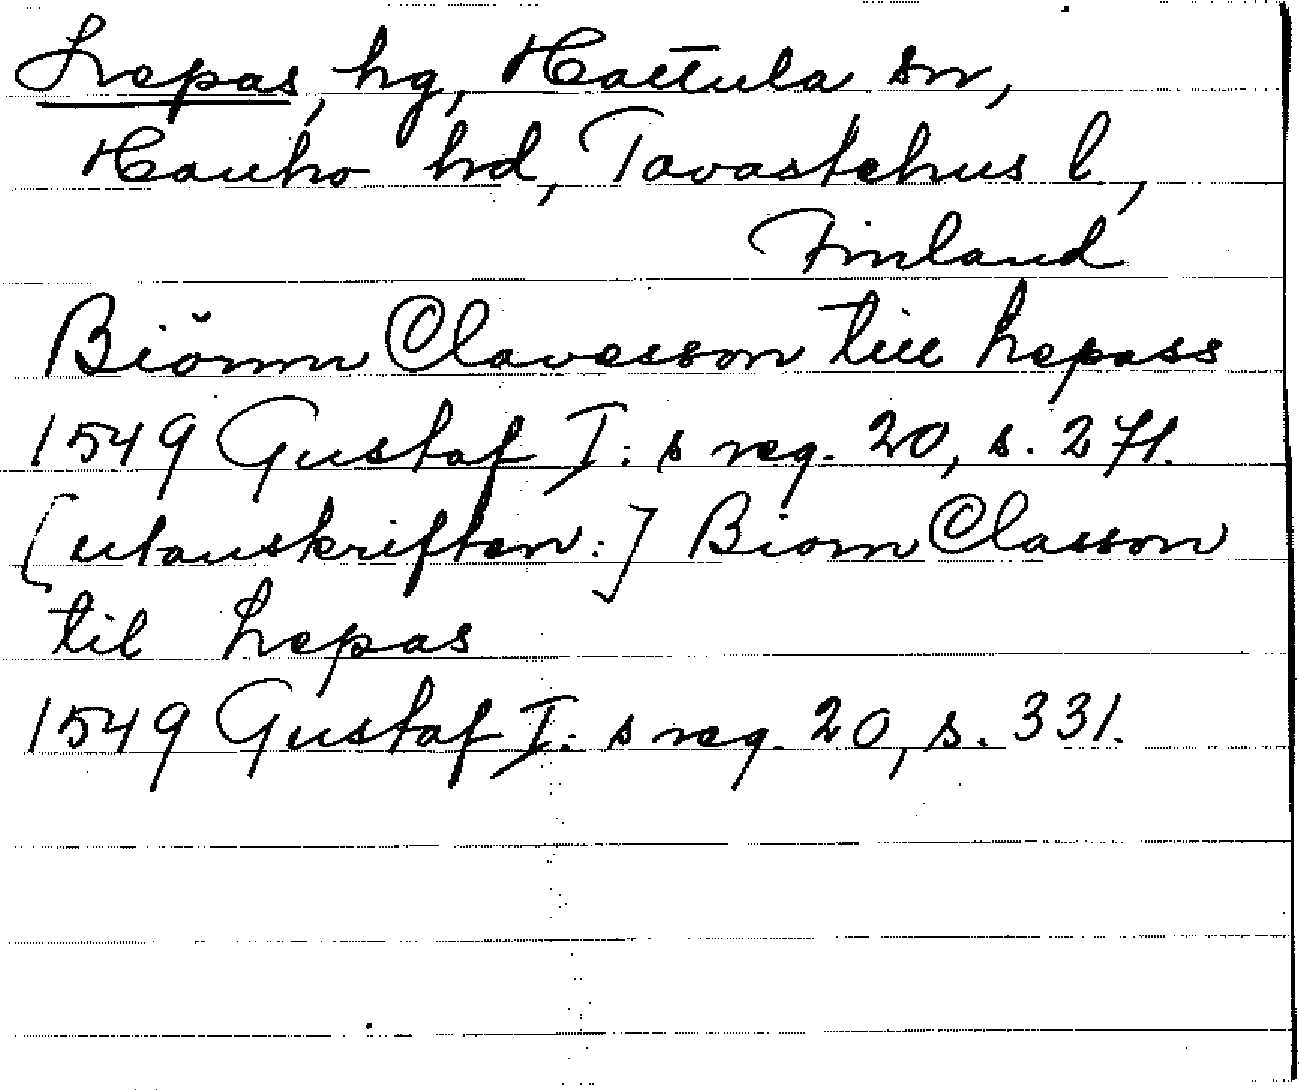 Lepas, hg, Hattula sn,
Hauho hd, Tavastehus l,
Finland
Biörnn Clavesson till Lepass
1549 Gustaf I: s reg. 20, s. 271.
[utanskriften:] Biorn Classon
til Lepas
1549 Gustaf I: s reg. 20, s. 331.